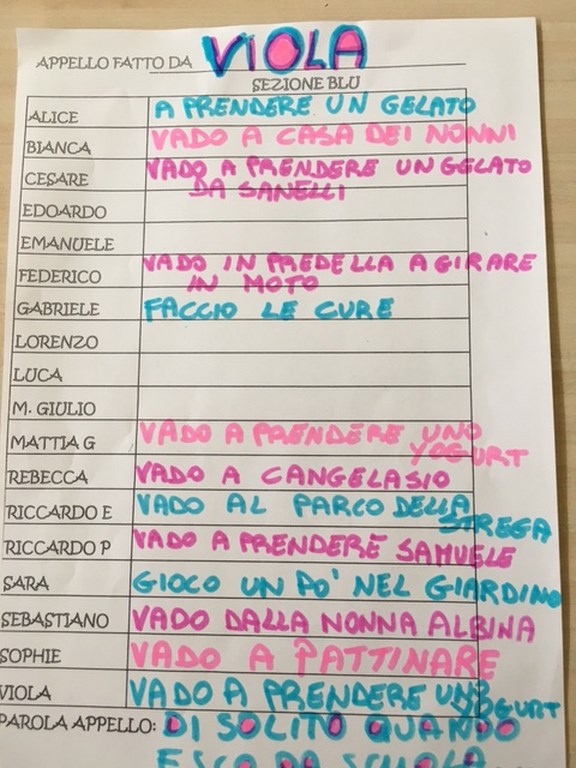 APPELLO FATTO DA VIOLA
SEZIONE BLU
ALICE A PRENDERE UN GELATO
BIANCA VADO A CASA DEI NONNI
CESARE VADO A PRENDERE UN GELATO
DA SANELLI
EDOARDO
EMANUELE
FEDERICO VADO IN PREDELLA A GIRARE
IN MOTO
GABRIELE FACCIO LE CURE
LORENZO
LUCA
M. GIULIO
MATTIA G VADO A PRENDERE UNO
YOGURT
REBECCA VADO A CANGELASIO
RICCARDO E VADO AL PARCO DELLA
STREGA
RICCARDO P VADO A PRENDERE SAMUELE
SARA GIOCO UN PO' NEL GIARDINO
SEBASTIANO VADO DALLA NONNA ALBINA
SOPHIE VADO A PATTINARE
VIOLA VADO A PRENDERE UNO
YOGURT
PAROLA APPELLO: DI SOLITO QUANDO
ESCO DA SCUOLA